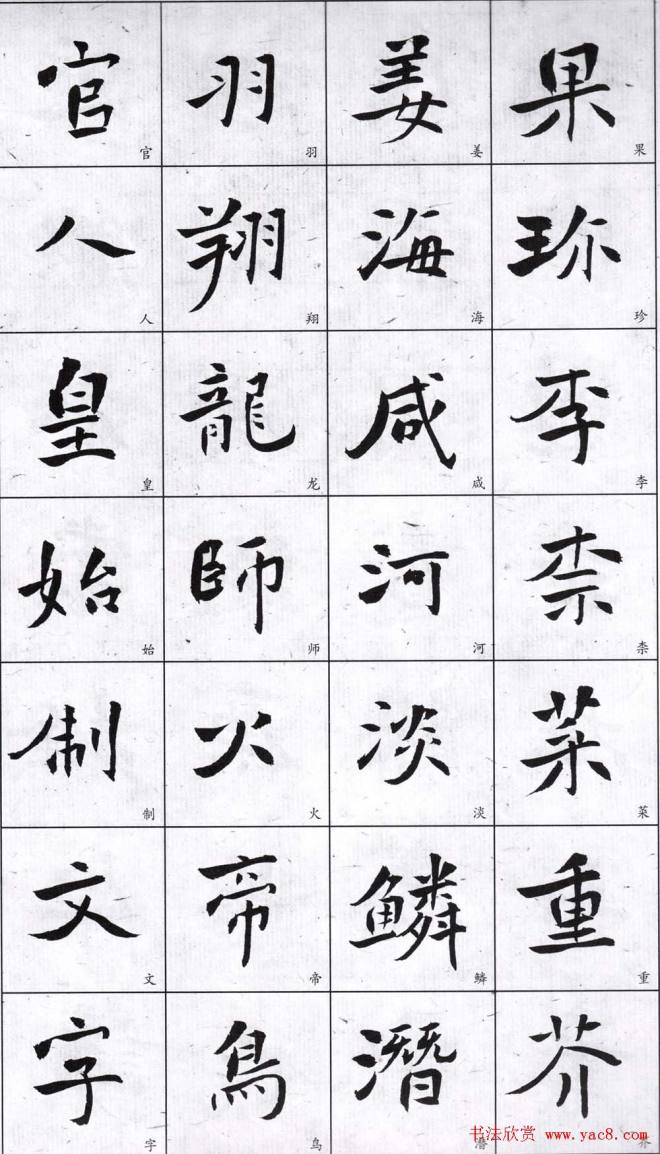 果珎李柰菜重芥
果珍李柰菜重芥
姜海咸河淡鳞潛
姜海咸河淡鳞潜
羽翔龍師火帝鳥
羽翔龙师火帝鸟
官人皇始制文字
官人皇始制文字
书法欣赏 www.yac8.com